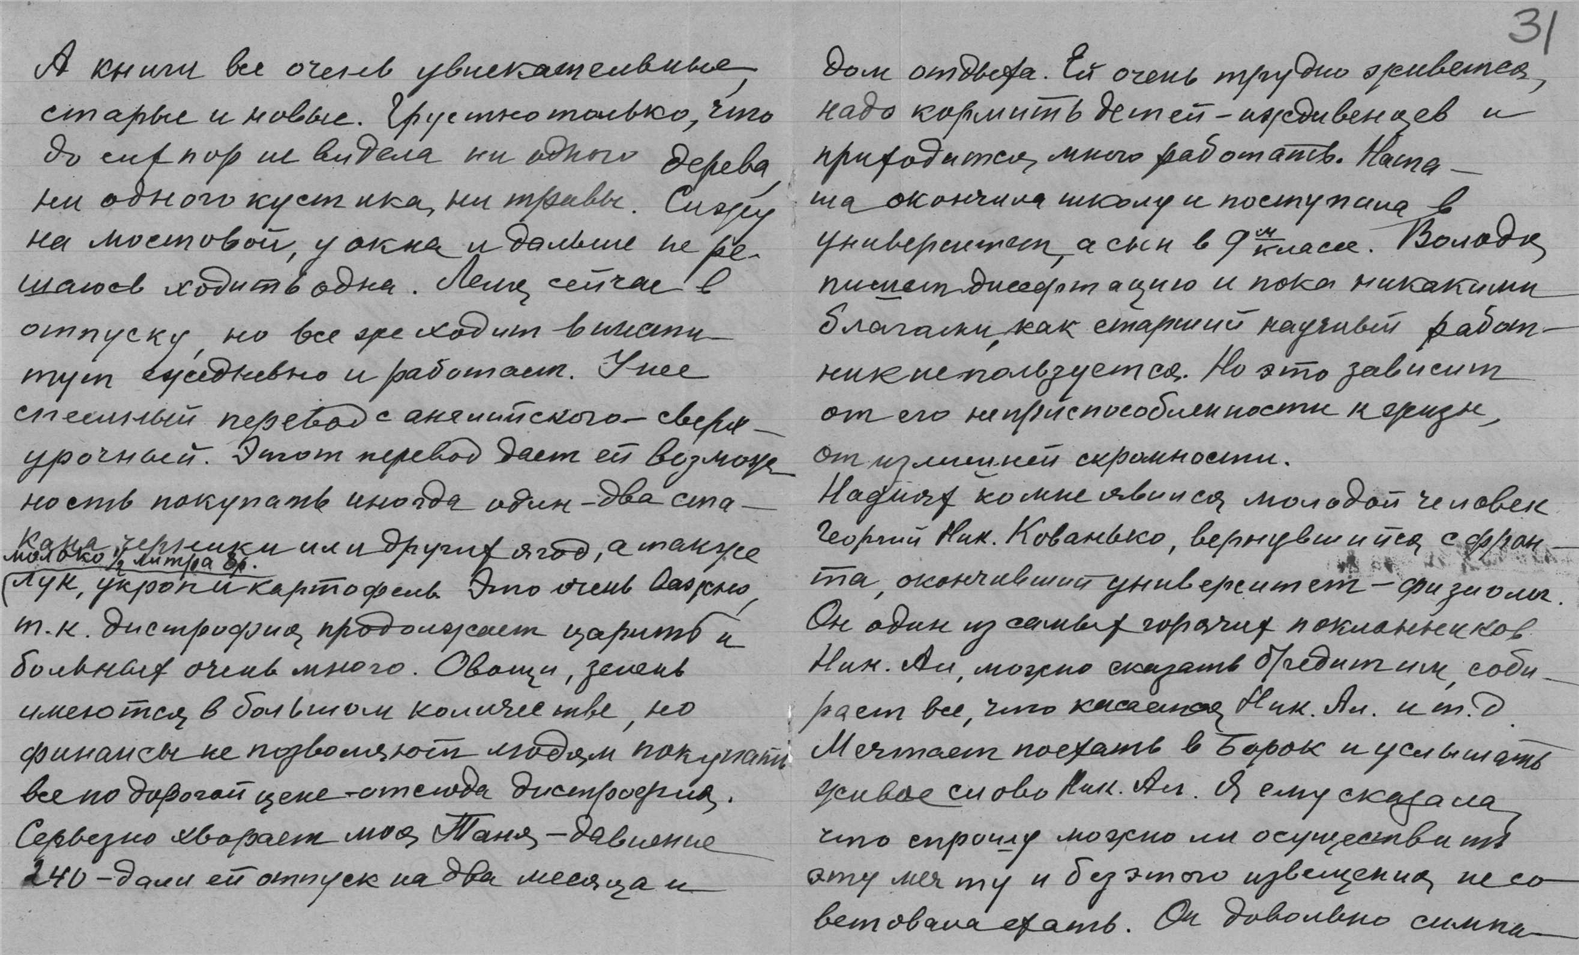 А книги все очень увлекательные,
старые и новые. Грустно только, что
до сих пор не видела ни одного дерева,
ни одного кустика, ни травы. Сижу
на мостовой, у окна и дальше не ре-
шаюсь ходить одна. Леля сейчас в
отпуску, но все же ходит в инсти-
тут ежедневно и работает. У нее
спешный перевод с английского – сверх-
урочный. Этот перевод дает ей возмож-
ность покупать иногда один-два ста-
кана черники или других ягод, а также
молоко ½ литра
(лук, укроп и картофель. Это очень важно,
т.к. дистрофия продолжает царить и
больных очень много. Овощи, зелень
имеются в большом количестве, но
финансы не позволяют людям покупать
все по дорогой цене – отсюда дистрофия.
Серьезно хворает моя Таня – давление
240 – дали ей отпуск на два месяца и
31
дом отдыха. Ей очень трудно живется,
надо кормить детей-иждивенцев и
приходится много работать. Ната-
ша окончила школу и поступила в
университет, а сын в 9м классе. Володя
пишет диссертацию и пока никакими
благами, как старший научный работ-
ник не пользуется. Но это зависит
от его неприспособленности к жизн,
от излишней скромности.
На днях ко мне явился молодой человек
Георгий Ник. Кованько, вернувшийся с фрон-
та, окончивший университет – физиолог.
Он один из самых горячих поклонников
Ник. Ал, можно сказать бредит им, соби-
рает все, что касается Ник. Ал. и т.д.
Мечтает поехать в Борок и услышать
живое слово Ник. Ал. Я ему сказала,
что спрошу можно ли осуществить
эту мечту и без этого извещения не со-
ветовала ехать. Он довольно симпа-